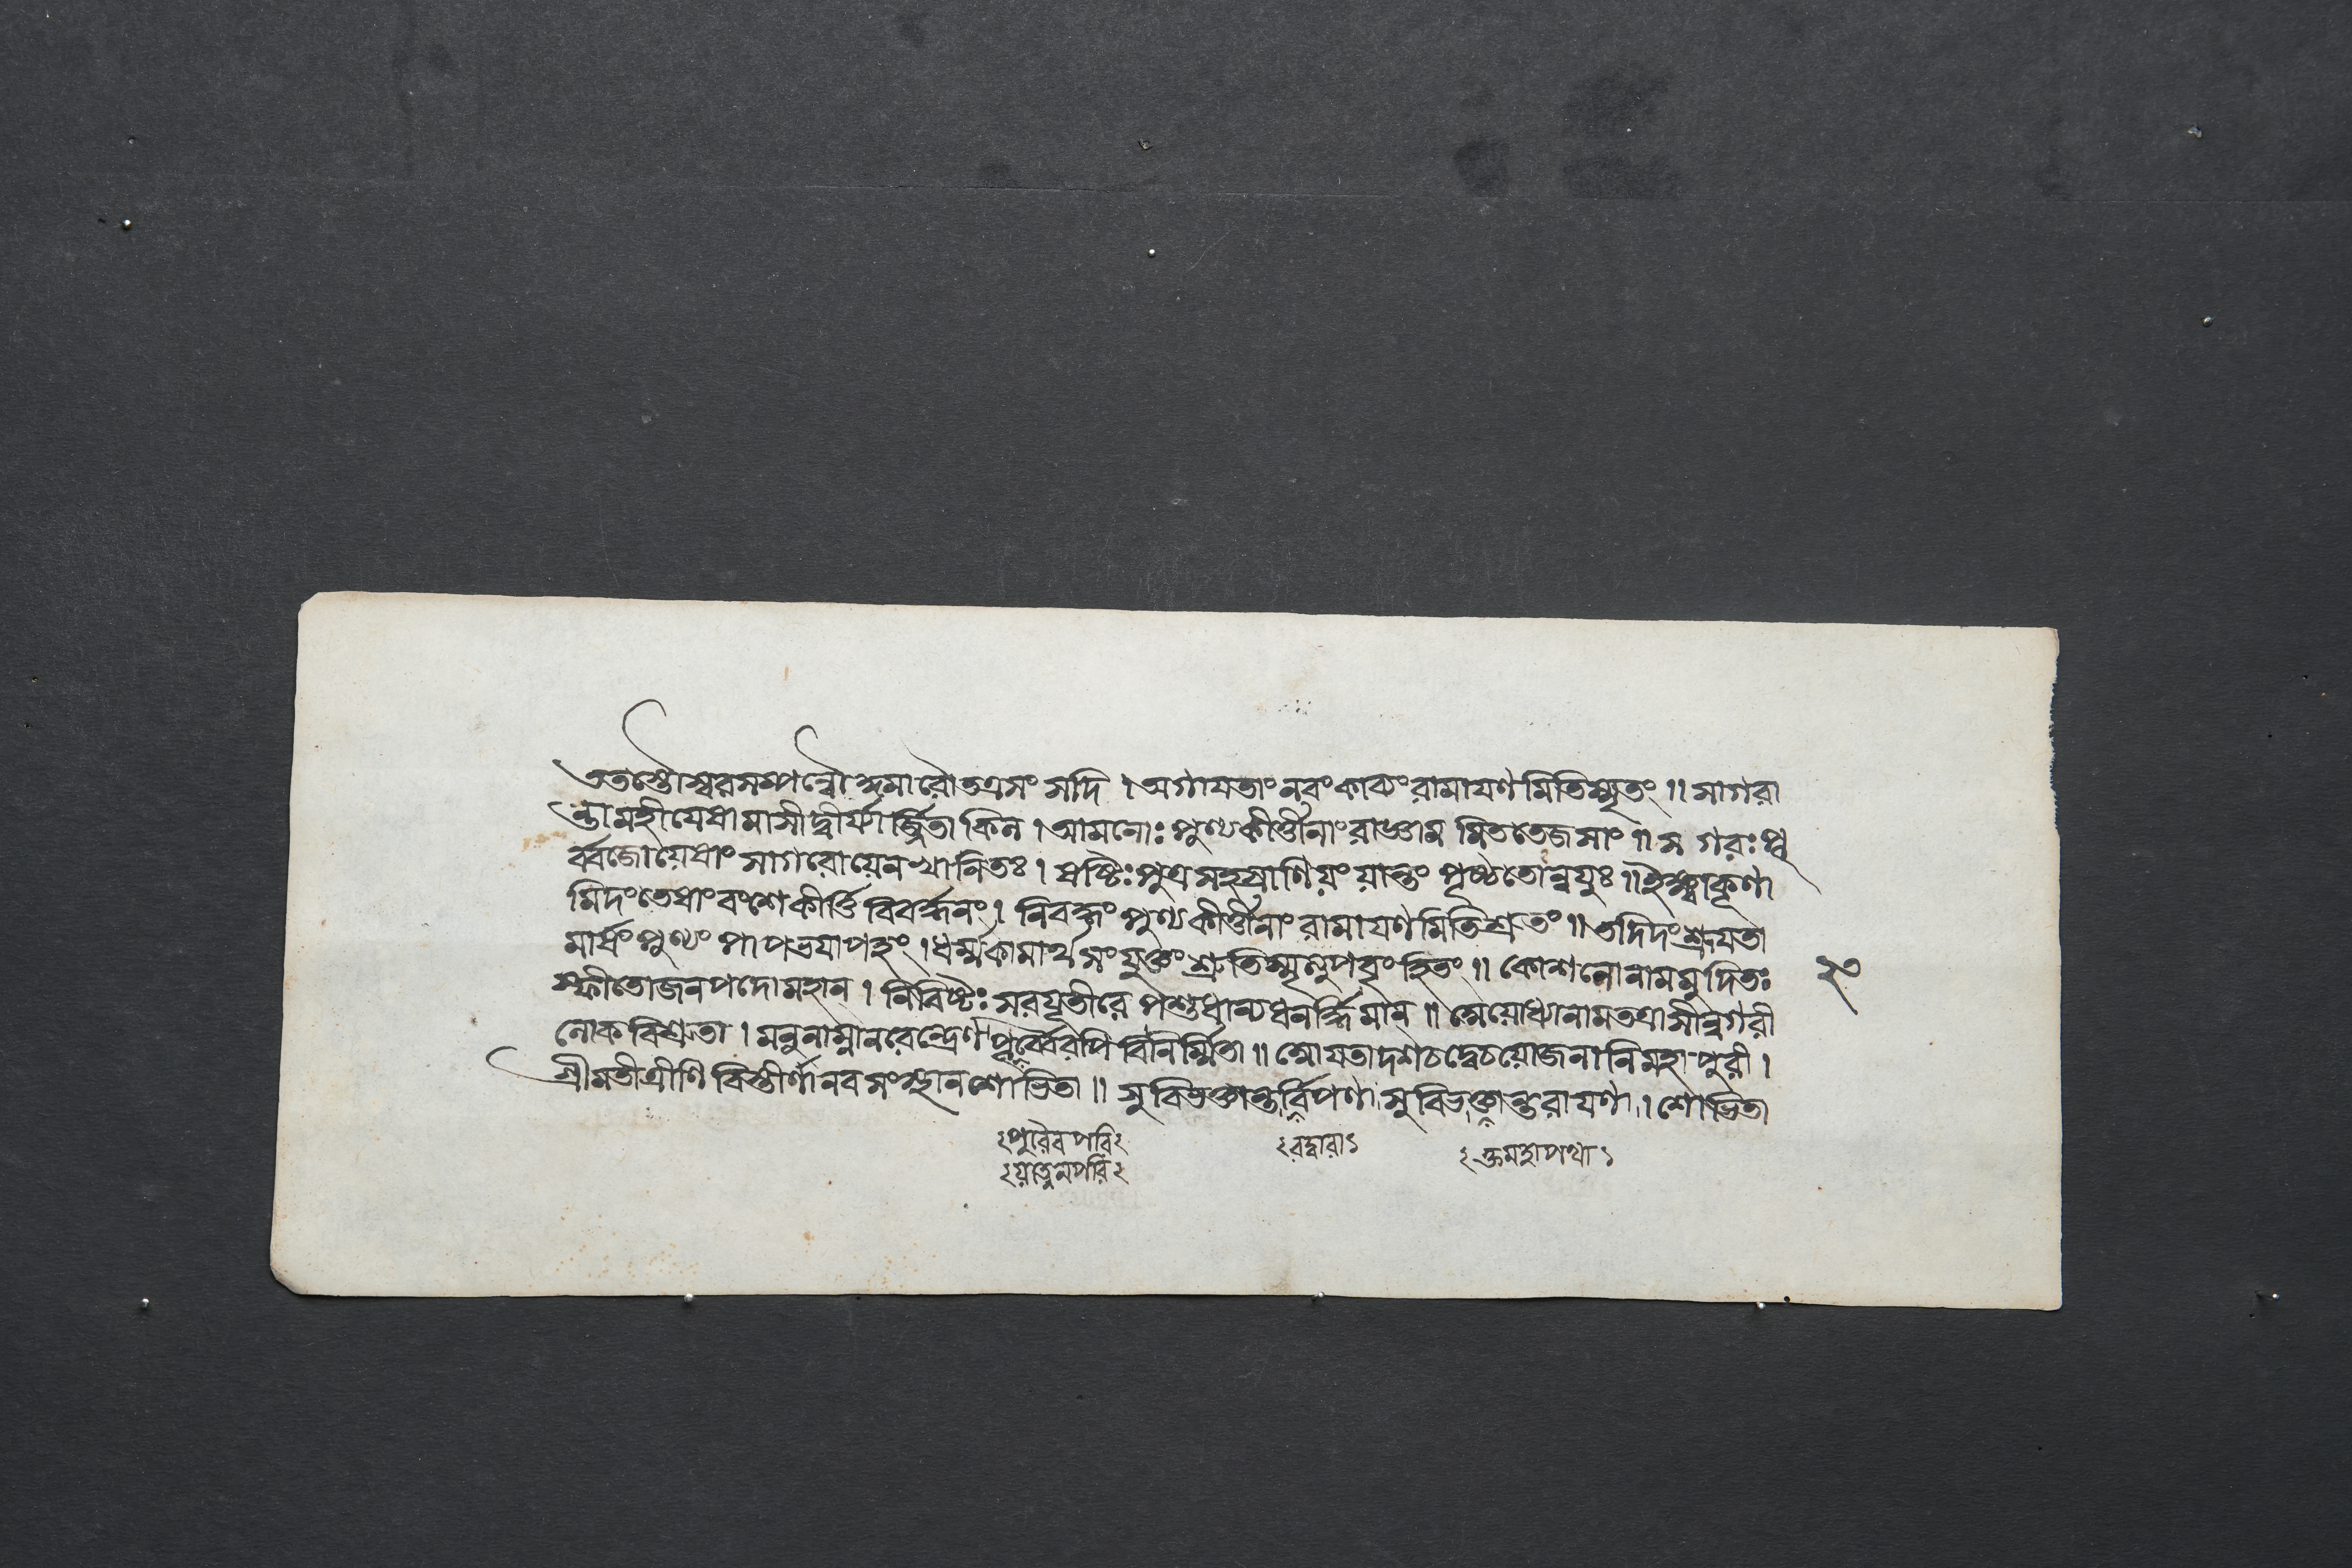 ততস্তৌস্বরসম্পন্নৌকুমারৌতত্রসংসদি । অগাযতাংনবংকাব্যংরামাযণমিতিস্মৃতং ॥ সাগরা
ন্তামহীযেষামাসীদ্বীর্য্যার্জ্জিতাকিল । আমনোঃ পুণ্যকীর্ত্তীনাংরাজ্ঞামমিততেজসাং ॥ সগরঃপূ
র্ব্বজোযেষাং সাগরোযেনখানিতঃ । ষষ্টিঃপুত্রসহস্রাণিযংযান্তংপৃষ্ঠতোন্বযুঃ ॥ ইক্ষ্বাকূণা
মিদংতেষাংবংশেকীর্ত্তিবিবর্দ্ধনং । নিবদ্ধংপুণ্যকীর্ত্তীনাংরামাযণমিতিশ্রুতং ॥ তদিদংশ্রূযতা
মার্ষংপুণ্যংপাপভযাপহং । ধর্ম্মকামার্থসংযুক্তংশ্রুতিস্মৃত্যুপবৃংহিতং ॥ কোশলোনামমুদিতঃ
স্ফীতোজনপদোমহান্ । নিবিষ্টঃসরযূতীরেপশুধান্যধনর্দ্ধিমান্ ॥ অযোধ্যানামতত্রাসীন্নগরী
লোকবিশ্রুতা । মনুনাম্নানরেন্দ্রেণপূর্ব্বৈরপিবিনির্ম্মিতা ॥ আযতাদশচদ্বেচযোজনানিমহাপুরী ।
শ্রীমতীত্রীণিবিস্তীর্ণানবসংস্থানশোভিতা ॥ সুবিভক্তান্তর্বিপণাসুবিভক্তান্তরাযণা । শোভিতা
২পুরৈবপরি২
রদ্বারা১
২ক্তমহাপথা১